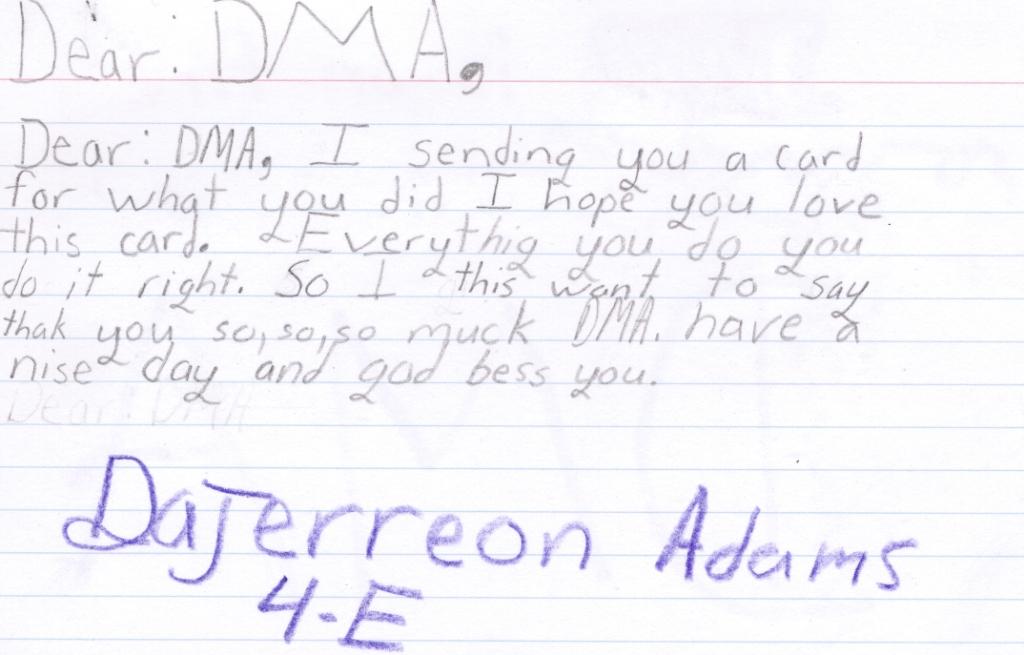 Dear: DMA,
Dear: DMA, I sending you a card
for what you did I hope you love
this card. Everythig you do you
do it right. So I this want to say
thak you so, so, so muck DMA. have a
nise day and god bess you.
Dear: DMA
DaJerreon Adams
4-E